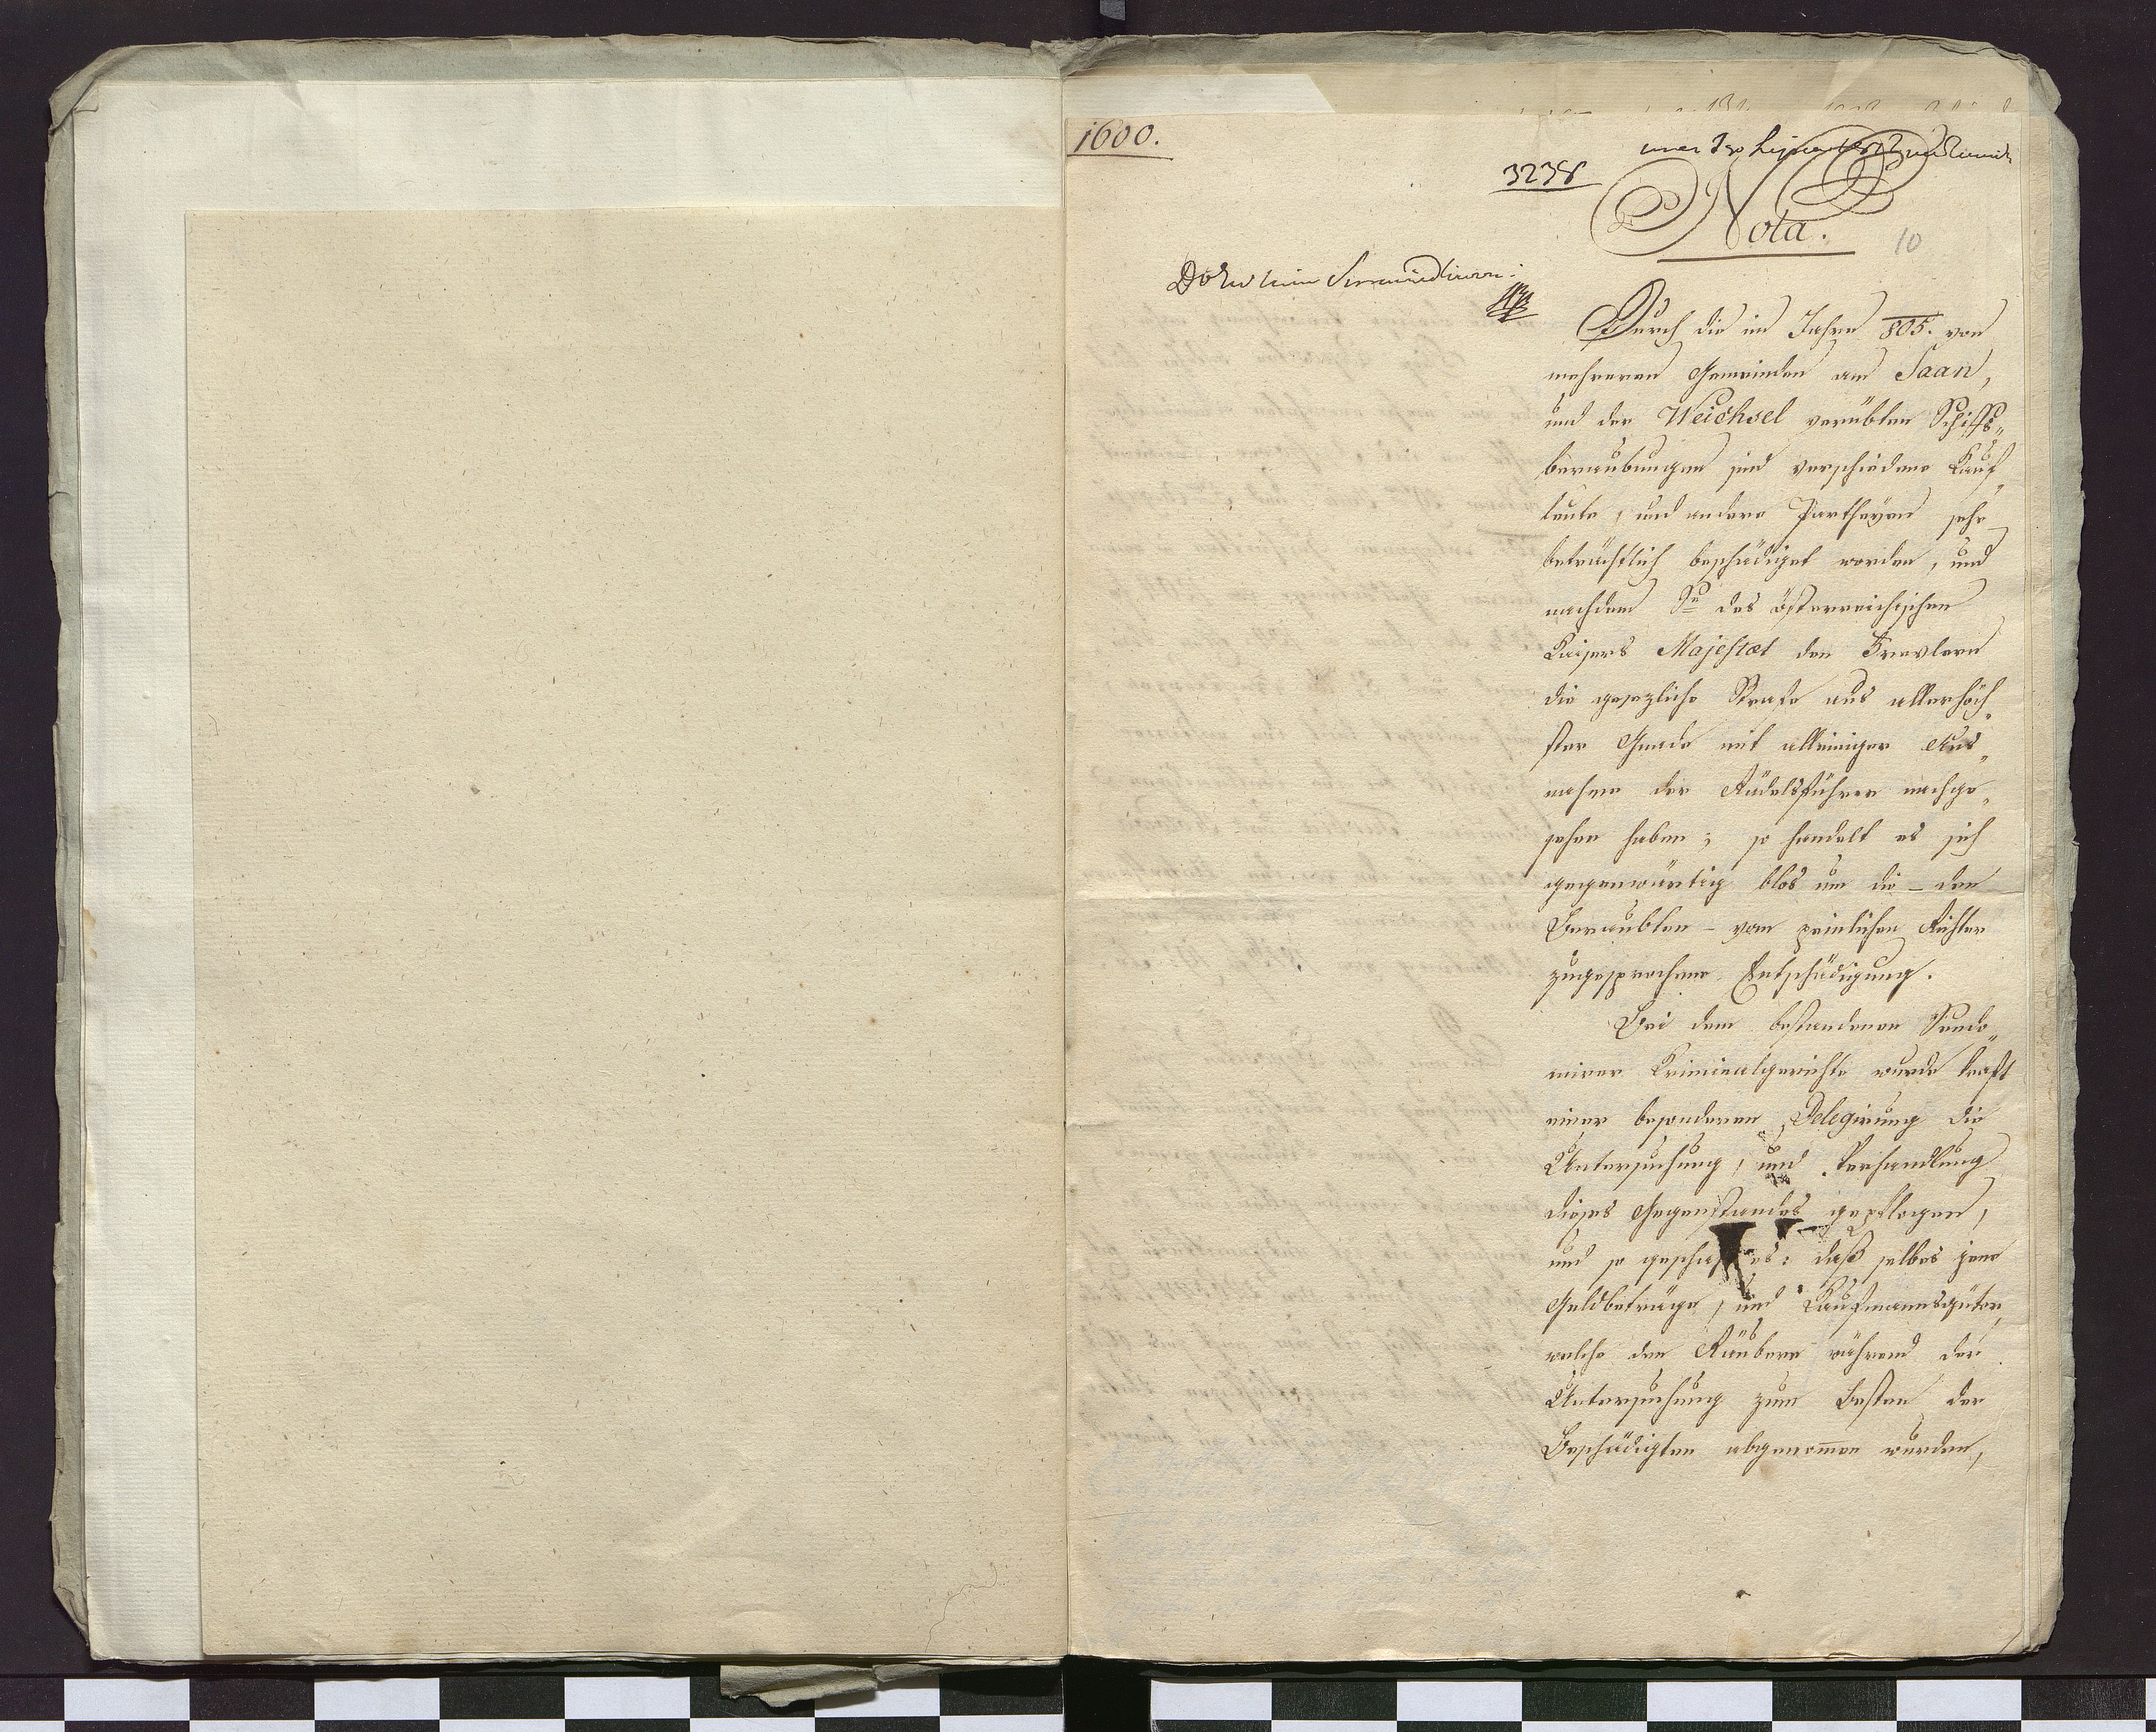 1600.
3238
Nota.
10
Durch die im Jahre 805. von
mehreren Gemeinden am Saan,
und der Weichsel verübten Schiffs„
beraubungen sind verschiedene Kauf„
leute, und andere Partheyen sehr
beträchtlich beschädiget worden, und
nachdem Se des österreichischen
Kaisers Majestæt den Frevlern
die gesezliche Strafe aus allerhöch„
ster Gnade mit alleiniger Aus„
nahme der Rädelsführer nachge„
sehen haben; so handelt es sich
gegenwärtig blos um die – den
Beraubten – vom peinlichen Richter
zugesprochene Entschädigung.
Bei dem bestandenen Sendo„
mirer Kriminalgerichte wurde kraft
einer besonderen Delegirung die
Untersuchung, und Verhandlung
dieses Gegenstandes gepflogen,
und so geschah es: daß selbes jene
Geldbeträge, und Kaufmannsgüter,
welche den Räubern während der
Untersuchung zum Besten der
Beschädigten abgenommen wurden,